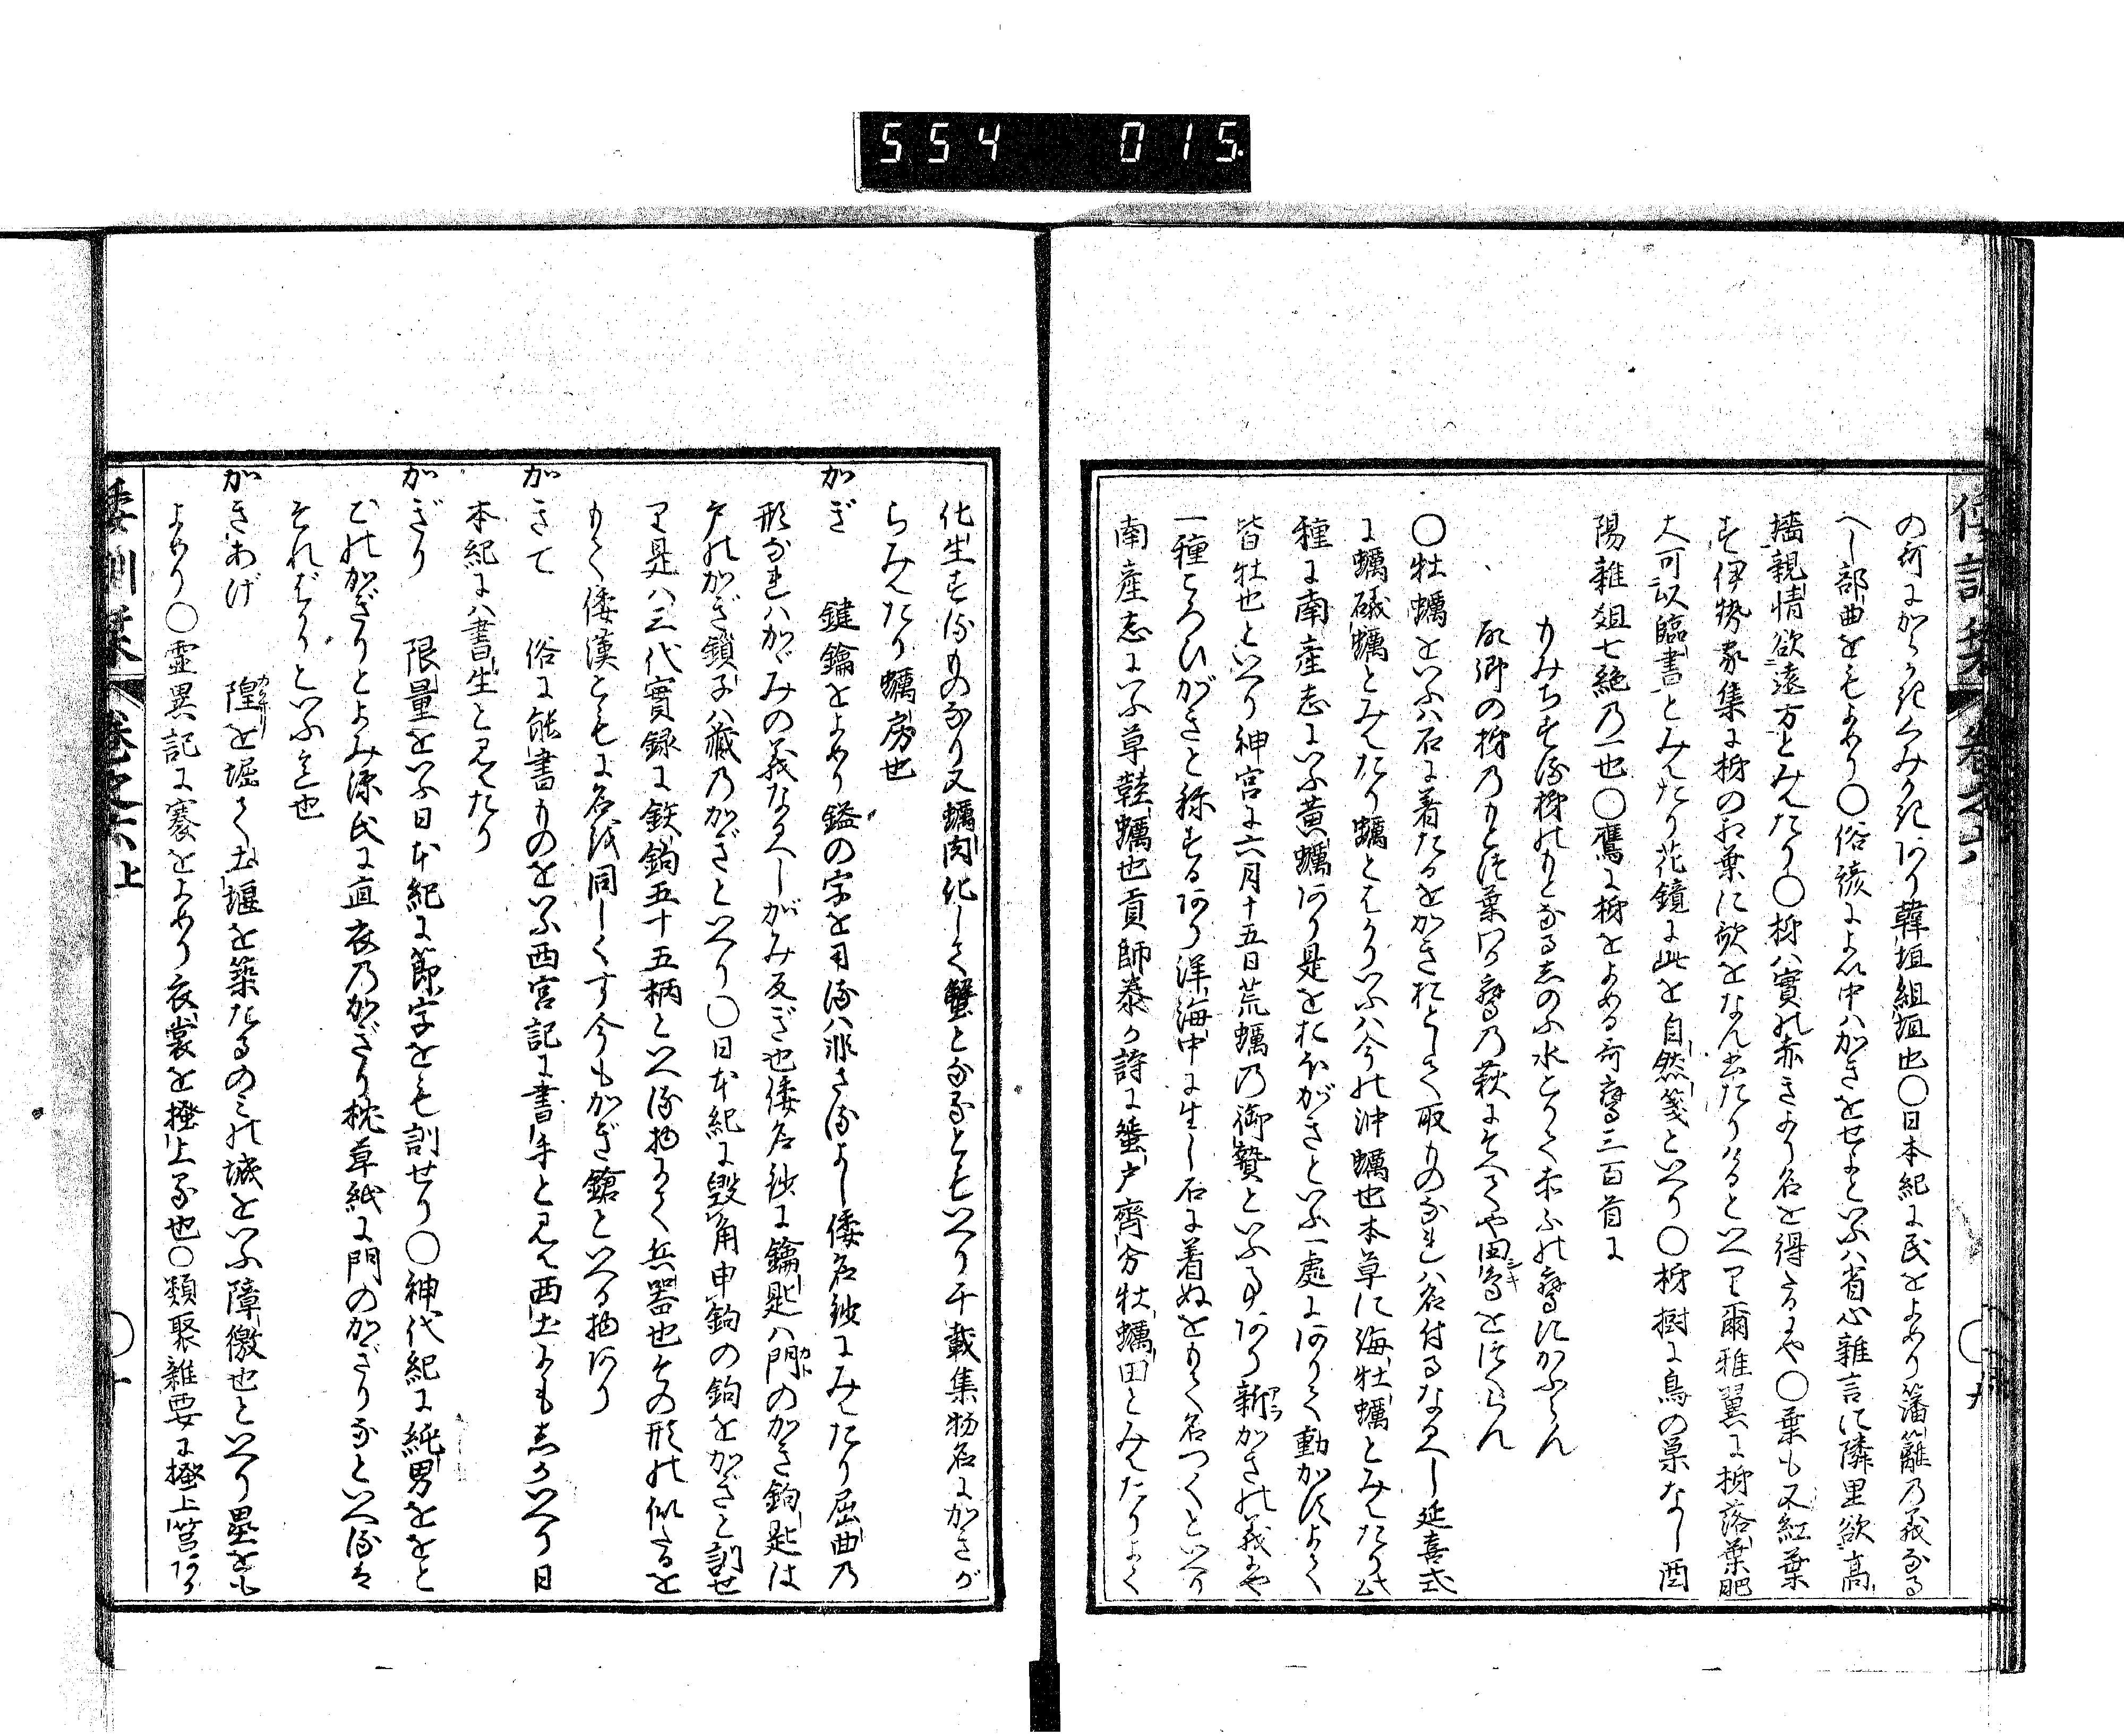 554 015
の哥にからかきくみかきあり韓垣組垣也〇日本紀に民をよめり籓籬乃義なる
へし部曲をもよめり〇俗諺によい中ハかきをせよといふハ省心雜言に隣里欲高
墻親情欲遠方とみえたり〇柿ハ實の赤きより名を得るにや〇葉も又紅葉
す伊勢家集に柿のお葉に歌をなん書たりけるといへり爾雅翼に柿落葉肥
大可以臨書とみえたり花鏡に此を自然箋といへり〇柿樹に鳥の巣なし酉
陽雜爼七絶乃一也〇鷹に柿をよめる哥鷹三百首に
もみちする柿のもとなる
〇牡蠣をいふハ石に着たるをかきおとして取ものなれハ名付るなるへし延喜式
に蠣礒蠣とみえたり蠣とはかりいふハ今の沖蠣也本草に海牡蠣とみえたり此
種に南産志にいふ黄蠣あり是をおほがきといふ一處にありて動かすよく
皆牡也といへり神宮に六月十五日荒蠣乃御贄といふ事あり新アラかきの義にや
一種ころびがきと稱するあり洋海中に生し石に着ぬをもて名つくといへり
南産志にいふ草鞋蠣也貢師泰か詩に蜑戸齊分牡蠣田とみえたりよく
倭訓栞 卷之六 〇九
化生するものなり又蠣肉化して蟹となるともいへり千載集物名にかきが
らみえたり蠣房也
かぎ 鍵鑰をよめり鎰の字を用るハ非さるよし倭名鈔にみえたり屈曲乃
形なれハかゞみの義なるへしがみ反ぎ也倭名鈔に鑰匙ハ門カトのかぎ鉤匙は
戸のかぎ鎖子ハ藏乃かぎといへり〇日本紀に毀角申鉤の鉤をかぎと訓せ
り是ハ三代實録に鉄鉤五十五柄といへる物にて兵器也その形の似たるを
もて倭漢ともに名を同しくす今もかぎ鎗といへる物あり
かきて 俗に能書ものをいふ西宮記に書手と見え西土にもしかいへり日
本紀にハ書生と見えたり
かぎり 限量をいふ日本紀に節字をも訓せり〇神代紀に純男ををと
このかぎりとよみ源氏に直衣乃かぎり枕草紙に門のかぎりなといへるは
そればかりといふ意也
かきあげ 隍カラホリを堀て土堰を築たるのミの城をいふ障徼也といへり壘をも
よめり〇靈異記に褰をよめり衣裳を掻上る也〇類聚雜要に掻上筥あり
倭訓栞 卷之六上 〇十